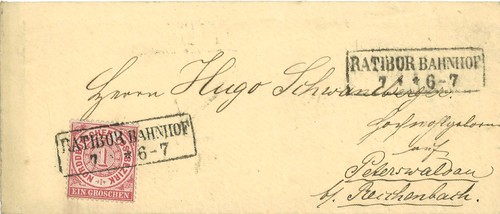 RATIBOR BAHNHOF
7 4 * 6-7
Herrn Hugo Schwantberger
RATIBOR BAHNHOF
7 * 6-7
NORDDEUTSCHER POSTBEZIRK
1
EIN GROSCHEN
auf
Peterswaldau
b/ Reichenbach.